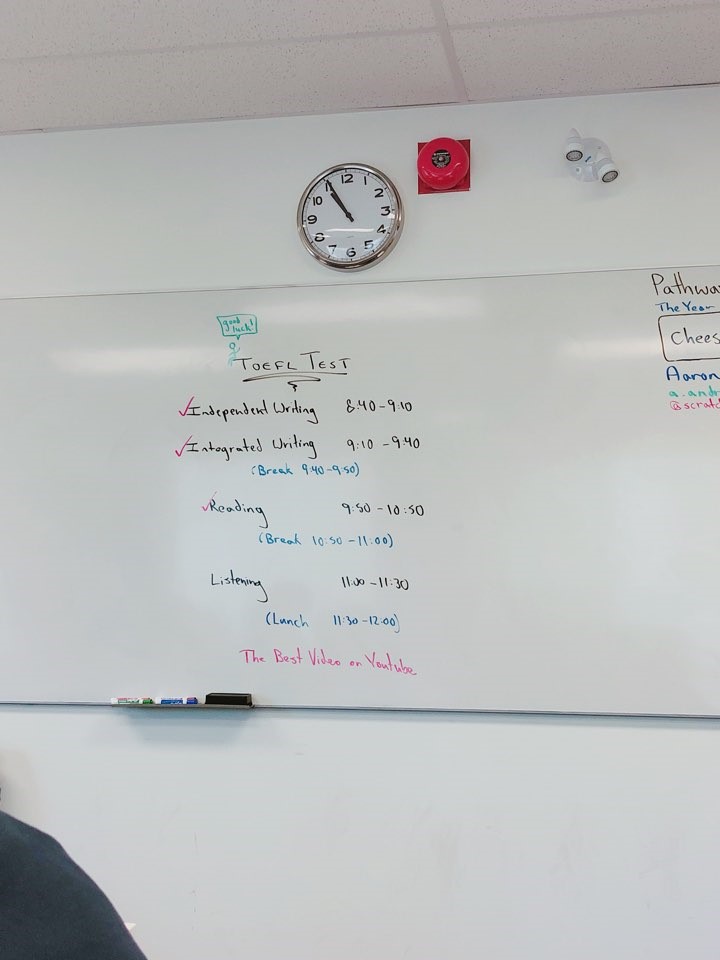 12
1
2
3
4
5
6
7
8
9
10
11
good luck!
TOEFL TEST
Independent Writing 8:40-9:10
Integrated Writing 9:10-9:40
(Break 9:40-9:50)
Reading 9:50-10:50
(Break 10:50-11:00)
Listening 11:00-11:30
(Lunch 11:30-12:00)
The Best Video on Youtube
Pathwa
The Year
Chees
Aaron
a.andr
@scratc